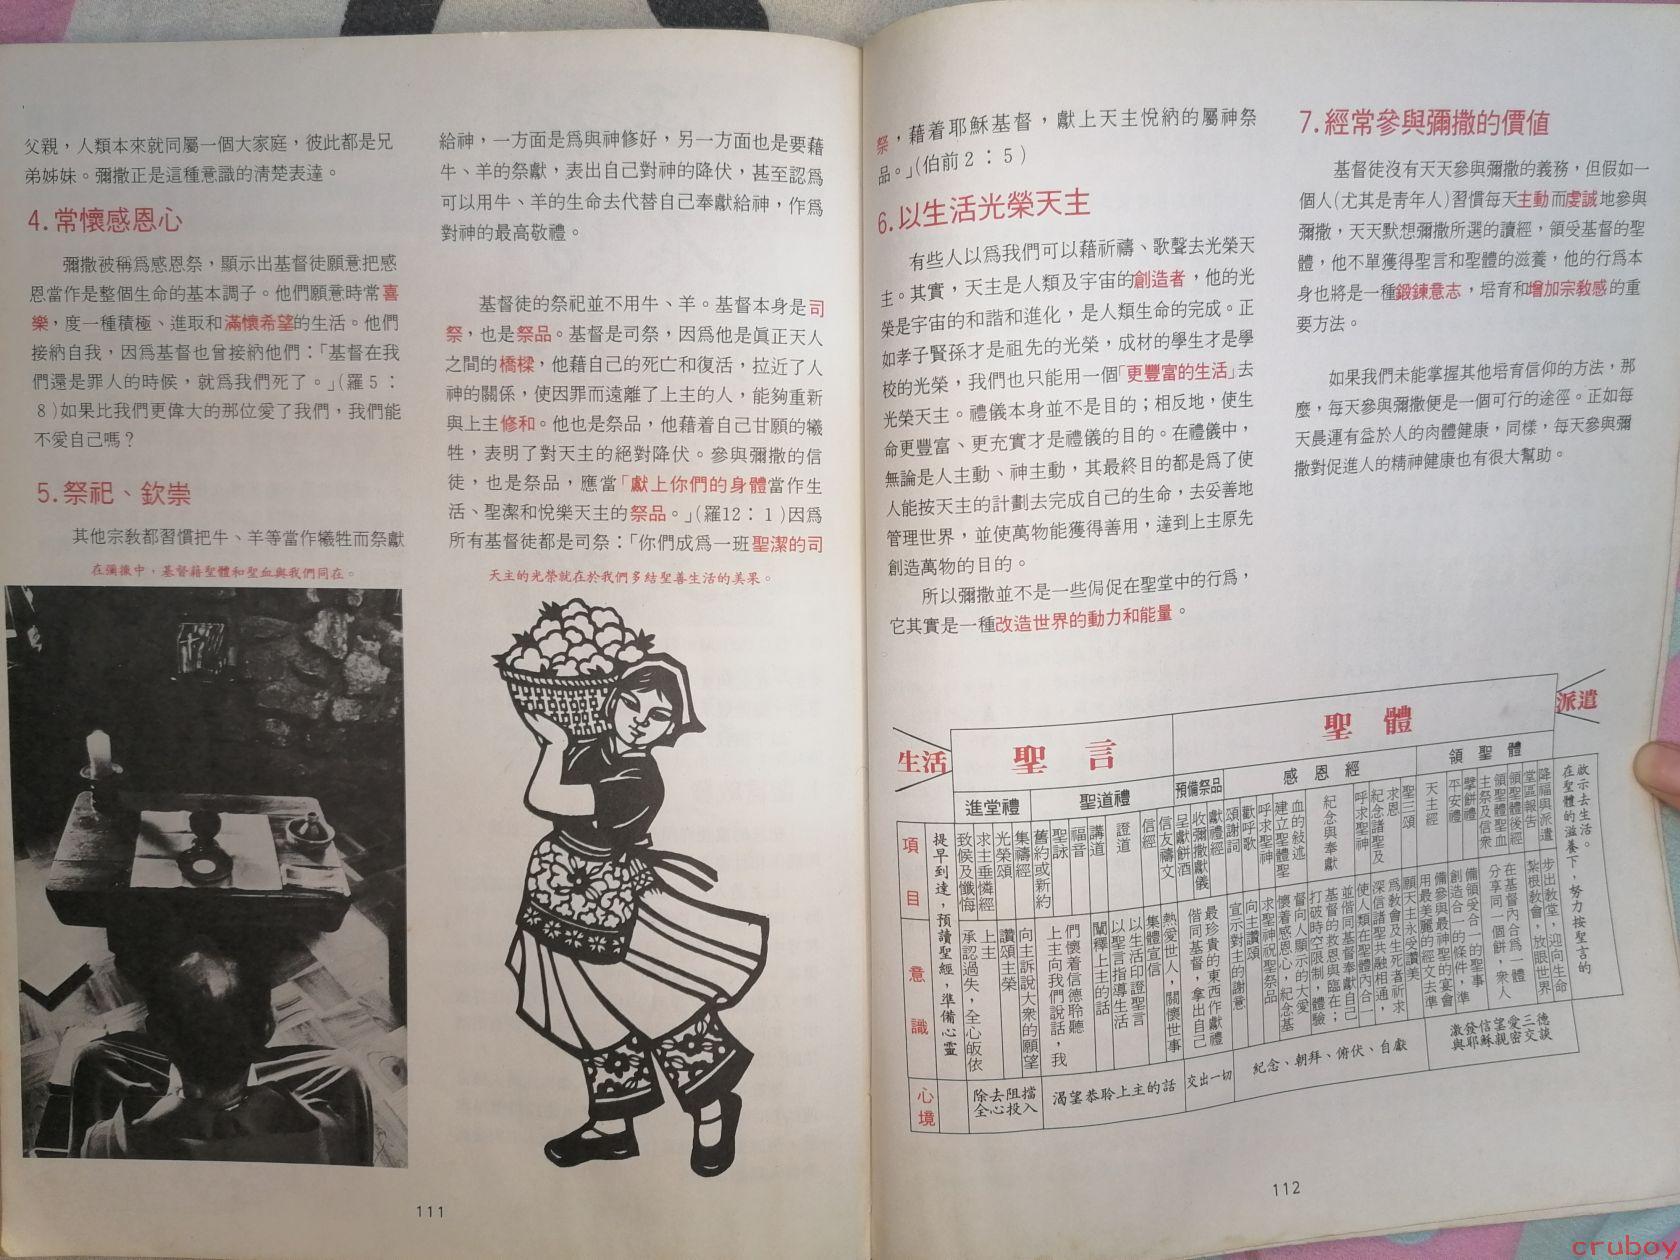 父親，人類本來就同屬一個大家庭，彼此都是兄
弟姊妹。彌撒正是這種意識的清楚表達。
4.常懷感恩心
彌撒被稱爲感恩祭，顯示出基督徒願意把感
恩當作是整個生命的基本調子。他們願意時常喜
樂，度一種積極、進取和滿懷希望的生活。他們
接納自我，因爲基督也曾接納他們：「基督在我
們還是罪人的時候，就爲我們死了。」(羅5：
8)如果比我們更偉大的那位愛了我們，我們能
不愛自己嗎？
5.祭祀、欽崇
其他宗教都習慣把牛、羊等當作犧牲而祭獻
在彌撒中，基督藉聖體和聖血與我們同在。
給神，一方面是爲與神修好，另一方面也是要藉
牛、羊的祭獻，表出自己對神的降伏，甚至認爲
可以用牛、羊的生命去代替自己奉獻給神，作爲
對神的最高敬禮。
基督徒的祭祀並不用牛、羊。基督本身是司
祭，也是祭品。基督是司祭，因爲他是眞正天人
之間的橋樑，他藉自己的死亡和復活，拉近了人
神的關係，使因罪而遠離了上主的人，能夠重新
與上主修和。他也是祭品，他藉着自己甘願的犧
牲，表明了對天主的絕對降伏。參與彌撒的信
徒，也是祭品，應當「獻上你們的身體當作生
活、聖潔和悅樂天主的祭品。」(羅12：1)因爲
所有基督徒都是司祭：「你們成爲一班聖潔的司
天主的光榮就在於我們多結聖善生活的美果。
111
祭，藉着耶穌基督，獻上天主悅納的屬神祭
品。」(伯前2：5)
6.以生活光榮天主
有些人以爲我們可以藉祈禱、歌聲去光榮天
主。其實，天主是人類及宇宙的創造者，他的光
榮是宇宙的和諧和進化，是人類生命的完成。正
如孝子賢孫才是祖先的光榮，成材的學生才是學
校的光榮，我們也只能用一個「更豐富的生活」去
光榮天主。禮儀本身並不是目的；相反地，使生
命更豐富、更充實才是禮儀的目的。在禮儀中，
無論是人主動、神主動，其最終目的都是爲了使
人能按天主的計劃去完成自己的生命，去妥善地
管理世界，並使萬物能獲得善用，達到上主原先
創造萬物的目的。
所以彌撒並不是一些侷促在聖堂中的行爲，
它其實是一種改造世界的動力和能量。
7.經常參與彌撒的價值
基督徒沒有天天參與彌撒的義務，但假如一
個人(尤其是青年人)習慣每天主動而虔誠地參與
彌撒，天天默想彌撒所選的讀經，領受基督的聖
體，他不單獲得聖言和聖體的滋養，他的行爲本
身也將是一種鍛鍊意志，培育和增加宗教感的重
要方法。
如果我們未能掌握其他培育信仰的方法，那
麼，每天參與彌撒便是一個可行的途徑。正如每
天晨運有益於人的肉體健康，同樣，每天參與彌
撒對促進人的精神健康也有很大幫助。
生活
聖言
聖體
派遣
進堂禮
聖道禮
預備祭品
感恩經
領聖體
項目
提早到達，預讀聖經，準備心靈
致候及懺悔
求主垂憐經
光榮頌
集禱經
舊約或新約
聖詠
福音
講道
證道
信經
信友禱文
呈獻餅酒
收彌撒獻儀
獻禮經
頌謝詞
歡呼歌
呼求聖神
建立聖體聖
血的敍述
紀念與奉獻
呼求聖神
紀念諸聖及
求恩
聖三頌
天主經
平安禮
擘餅禮
主祭及信衆
領聖體聖血
領聖體後經
堂區報告
降福與派遣
在聖體的滋養下，努力按聖言的
啟示去生活。
意識
承認過失，全心皈依
上主
讚頌主榮
向主訴說大衆的願望
上主向我們說話，我
們懷着信德聆聽
闡釋上主的話
以聖言指導生活
以生活印證聖言
集體宣信
熱愛世人，關懷世事
偕同基督，拿出自己
最珍貴的東西作獻禮
宣示對主的謝意
向主讚頌
求聖神祝聖祭品
懷着感恩心，紀念基
督向人顯示的大愛
打破時空限制，體驗
基督的救恩與臨在；
並偕同基督奉獻自己
使人類在聖體內合一
深信諸聖共融相通，
爲教會及生死者祈求
願天主永受讚美
用最美麗的經文去準
備參與最神聖的宴會
創造合一的條件，準
備領受合一的聖事
分享同一個餅，衆人
在基督內合爲一體
紮根教會，放眼世界
步出教堂，迎向生命
心境
除去阻擋
全心投入
渴望恭聆上主的話
交出一切
紀念、朝拜、俯伏、自獻
激發信望愛三德
與耶穌親密交談
112
cruboy